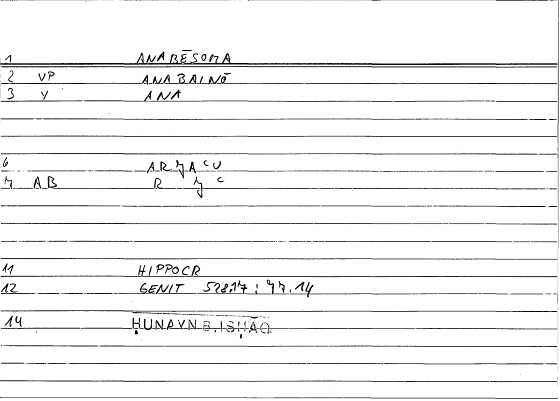 1 ANABĒSOMA
2 VP ANABAINŌ
3 V ANA
6 ARJAᶜU
7 AB R J ᶜ
11 HIPPOCR
12 GENIT 528.17 :
14 ḤUNAYN B.ISḤĀQ